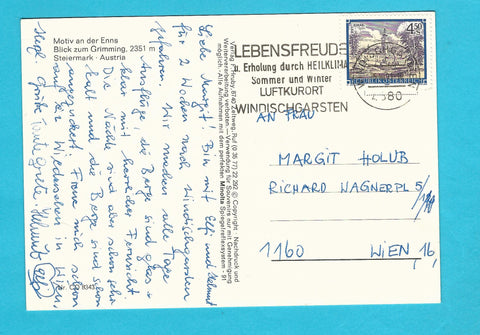 Motiv an der Enns
Blick zum Grimming, 2351 m
Steiermark - Austria
Liebe Margit! Bin mit Elfi und Helmut
für 2 Wochen nach Windischgarsten
gefahren. Wir machen alle Tage
Ausflüge, die Berge sind ganz
klar mit herrlicher Fernsicht.
Die Nächte sind aber schon sehr
kalt und die Berge sind schon
angezuckert. Freue mich schon
auf ein Wiedersehen in Wien,
Herzl. Grüße Tante Grete. Helmut
Verlag
8740 Zeltweg, Ruf (0 35 77) 22 2
© Copyright - Nachdruck und
Weiterverarbeitung verboten - Verwendung für Souvenirs nur mit Genehmigung
möglich - Alle Aufnahmen mit dem perfekten Minolta Spiegelreflexsystem - 91
LEBENSFREUDE
u. Erholung durch HEILKLIMA
Sommer und Winter
LUFTKURORT
WINDISCHGARSTEN
4.50
REPUBLIK ÖSTERREICH
AN FRAU
MARGIT HOLUB
RICHARD WAGNERPL 5/
1160 WIEN 16,